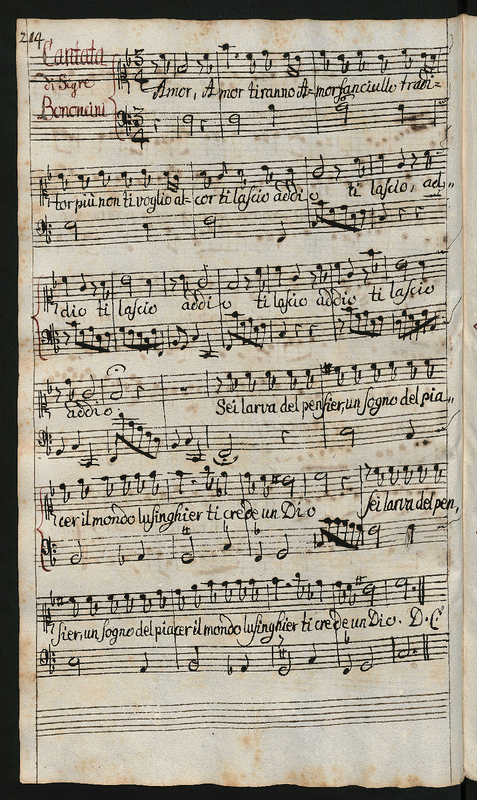 214
Cantata
di Sigre
Bononcini
Amor, Amor tiranno Amor fanciullo tradi=
tor più non ti voglio al cor ti lascio addio ti lascio, ad,,
dio ti lascio addio ti lascio addio ti lascio
addio Sei larva del pensier, un sogno del pia,,
cer il mondo lusinghier ti crede un Dio sei larva del pen,
sier, un sogno del piacer il mondo lusinghier ti crede un Dio. D. C.